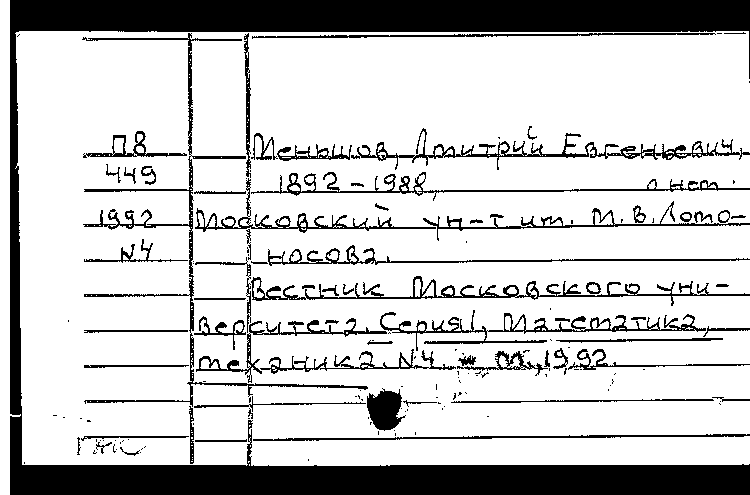 П8 Меньшов, Дмитрий Евгеньевич,
449 1892-1988, о нем.
1992 Московский ун-т им. М.В.Ломо-
N4 носова.
Вестник Московского уни-
верситета. Серия 1, Математика,
механика. N4. - М., 1992.
ГАК